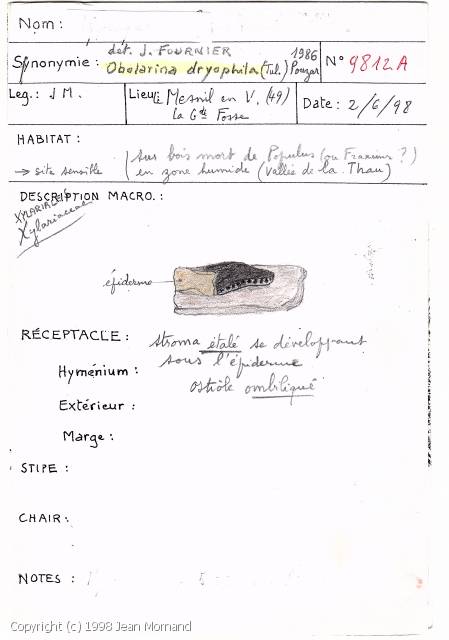 Nom :
dét. J. FOURNIER
Synonymie : Obolarina dryophila (Tul.) Pouzar 1986
N° 9812A
Leg. : J M.
Lieu : Le Mesnil en V. (49)
la Gde Fosse
Date : 2/6/98
HABITAT :
→ site sensible
Sur bois mort de Populus (ou Fraxinus ?)
en zone humide (Vallée de la Thau)
DESCRIPTION MACRO. :
XYLARIACEE
Xylariaceae
épiderme
RÉCEPTACLE : stroma étalé se développant
sous l'épiderme
Hyménium :
ostiole ombiliqué
Extérieur :
Marge :
STIPE :
CHAIR :
NOTES :
Copyright (c) 1998 Jean Mornand